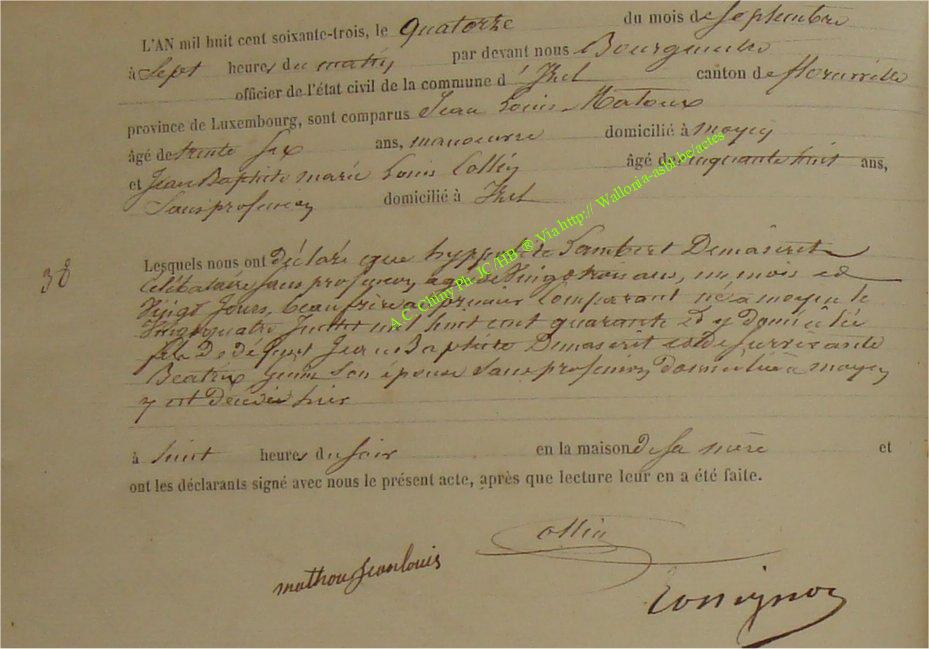 L'AN mil huit cent soixante-trois, le quatorze du mois de septembre
à sept heures du matin par devant nous Bourgmestre
officier de l'état civil de la commune d'Izel canton de florenville
province de Luxembourg, sont comparus Jean Louis Mathoux
âgé de trente six ans, manoeuvre domicilié à moyen
et Jean Baptiste marie Louis Collin âgé de cinquante huit ans,
Sans profession domicilié à Izel
38
Lesquels nous ont déclaré que hyppolite Lambert Demaseret
Célibataire sans profession, agé de Vingt trois ans, un mois et
Vingt Jours, beau frère au premier Comparant né a moyen le
Vingt quatre Juillet mil huit cent quarante et y domicilié
fils De défunt Jean Baptiste Demaseret et de survivante
Beatrix son épouse sans profession, domiciliée a moyen
y est décédé hier
à huit heures du soir en la maison de sa mère et
ont les déclarants signé avec nous le présent acte, après que lecture leur en a été faite.
Collin
mathou Jean louis
Rossignon
A.C. Chiny Ph. JC /HB ® Via http:// Wallonia-asbl.be/actes